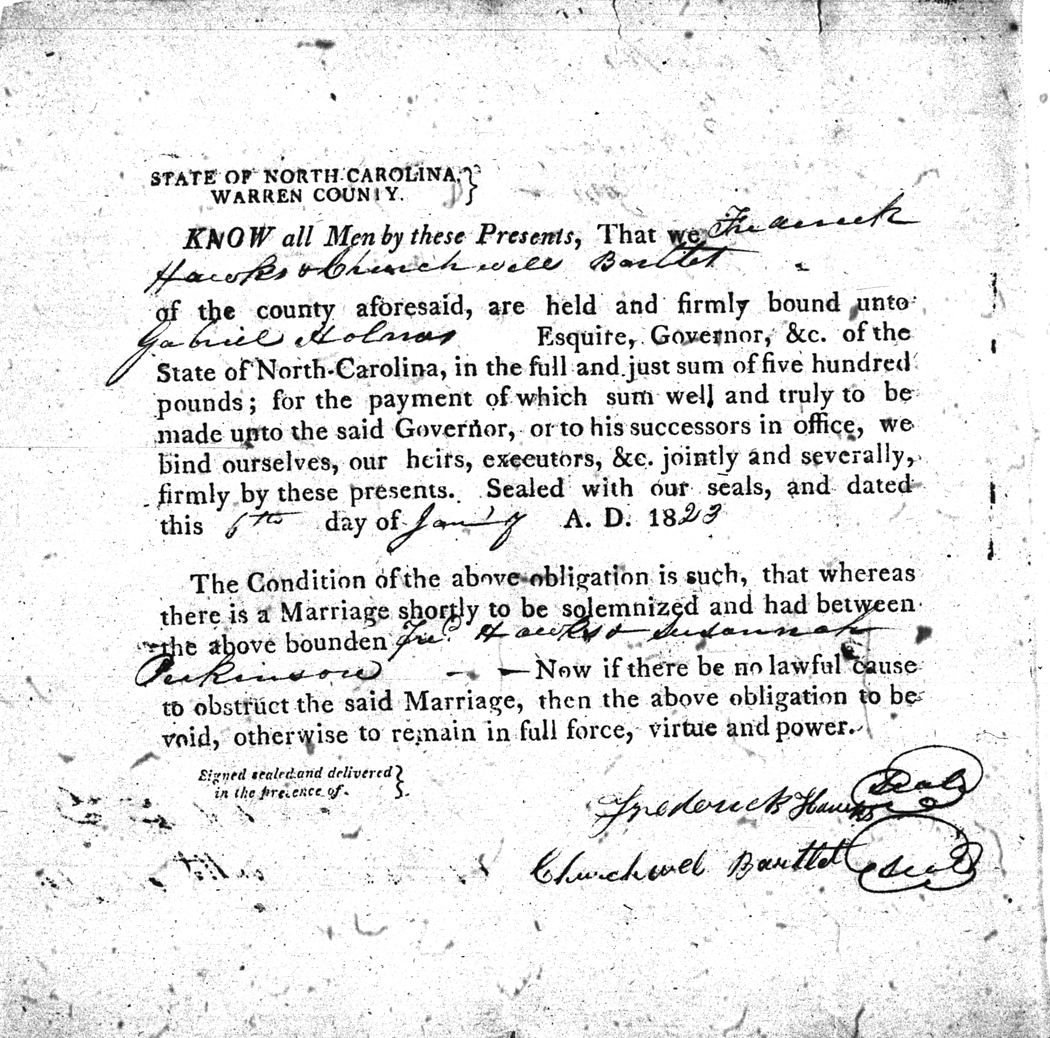 STATE OF NORTH CAROLINA,}
WARREN COUNTY.
KNOW all Men by these Presents, That we Frederick
Hawks & Churchwell Bartlet
of the county aforesaid, are held and firmly bound unto
Gabriel Holmes Esquire, Governor, &c. of the
State of North-Carolina, in the full and just sum of five hundred
pounds; for the payment of which sum well and truly to be
made unto the said Governor, or to his successors in office, we
bind ourselves, our heirs, executors, &c. jointly and severally,
firmly by these presents. Sealed with our seals, and dated
this 6th day of Jan'y A. D. 1823
The Condition of the above obligation is such, that whereas
there is a Marriage shortly to be solemnized and had between
the above bounden Fred Hawks & Susannah
Perkinson — — Now if there be no lawful cause
to obstruct the said Marriage, then the above obligation to be
void, otherwise to remain in full force, virtue and power.
Signed sealed and delivered }
in the presence of
Frederick Hawks Seal
Churchwel Bartlet Seal